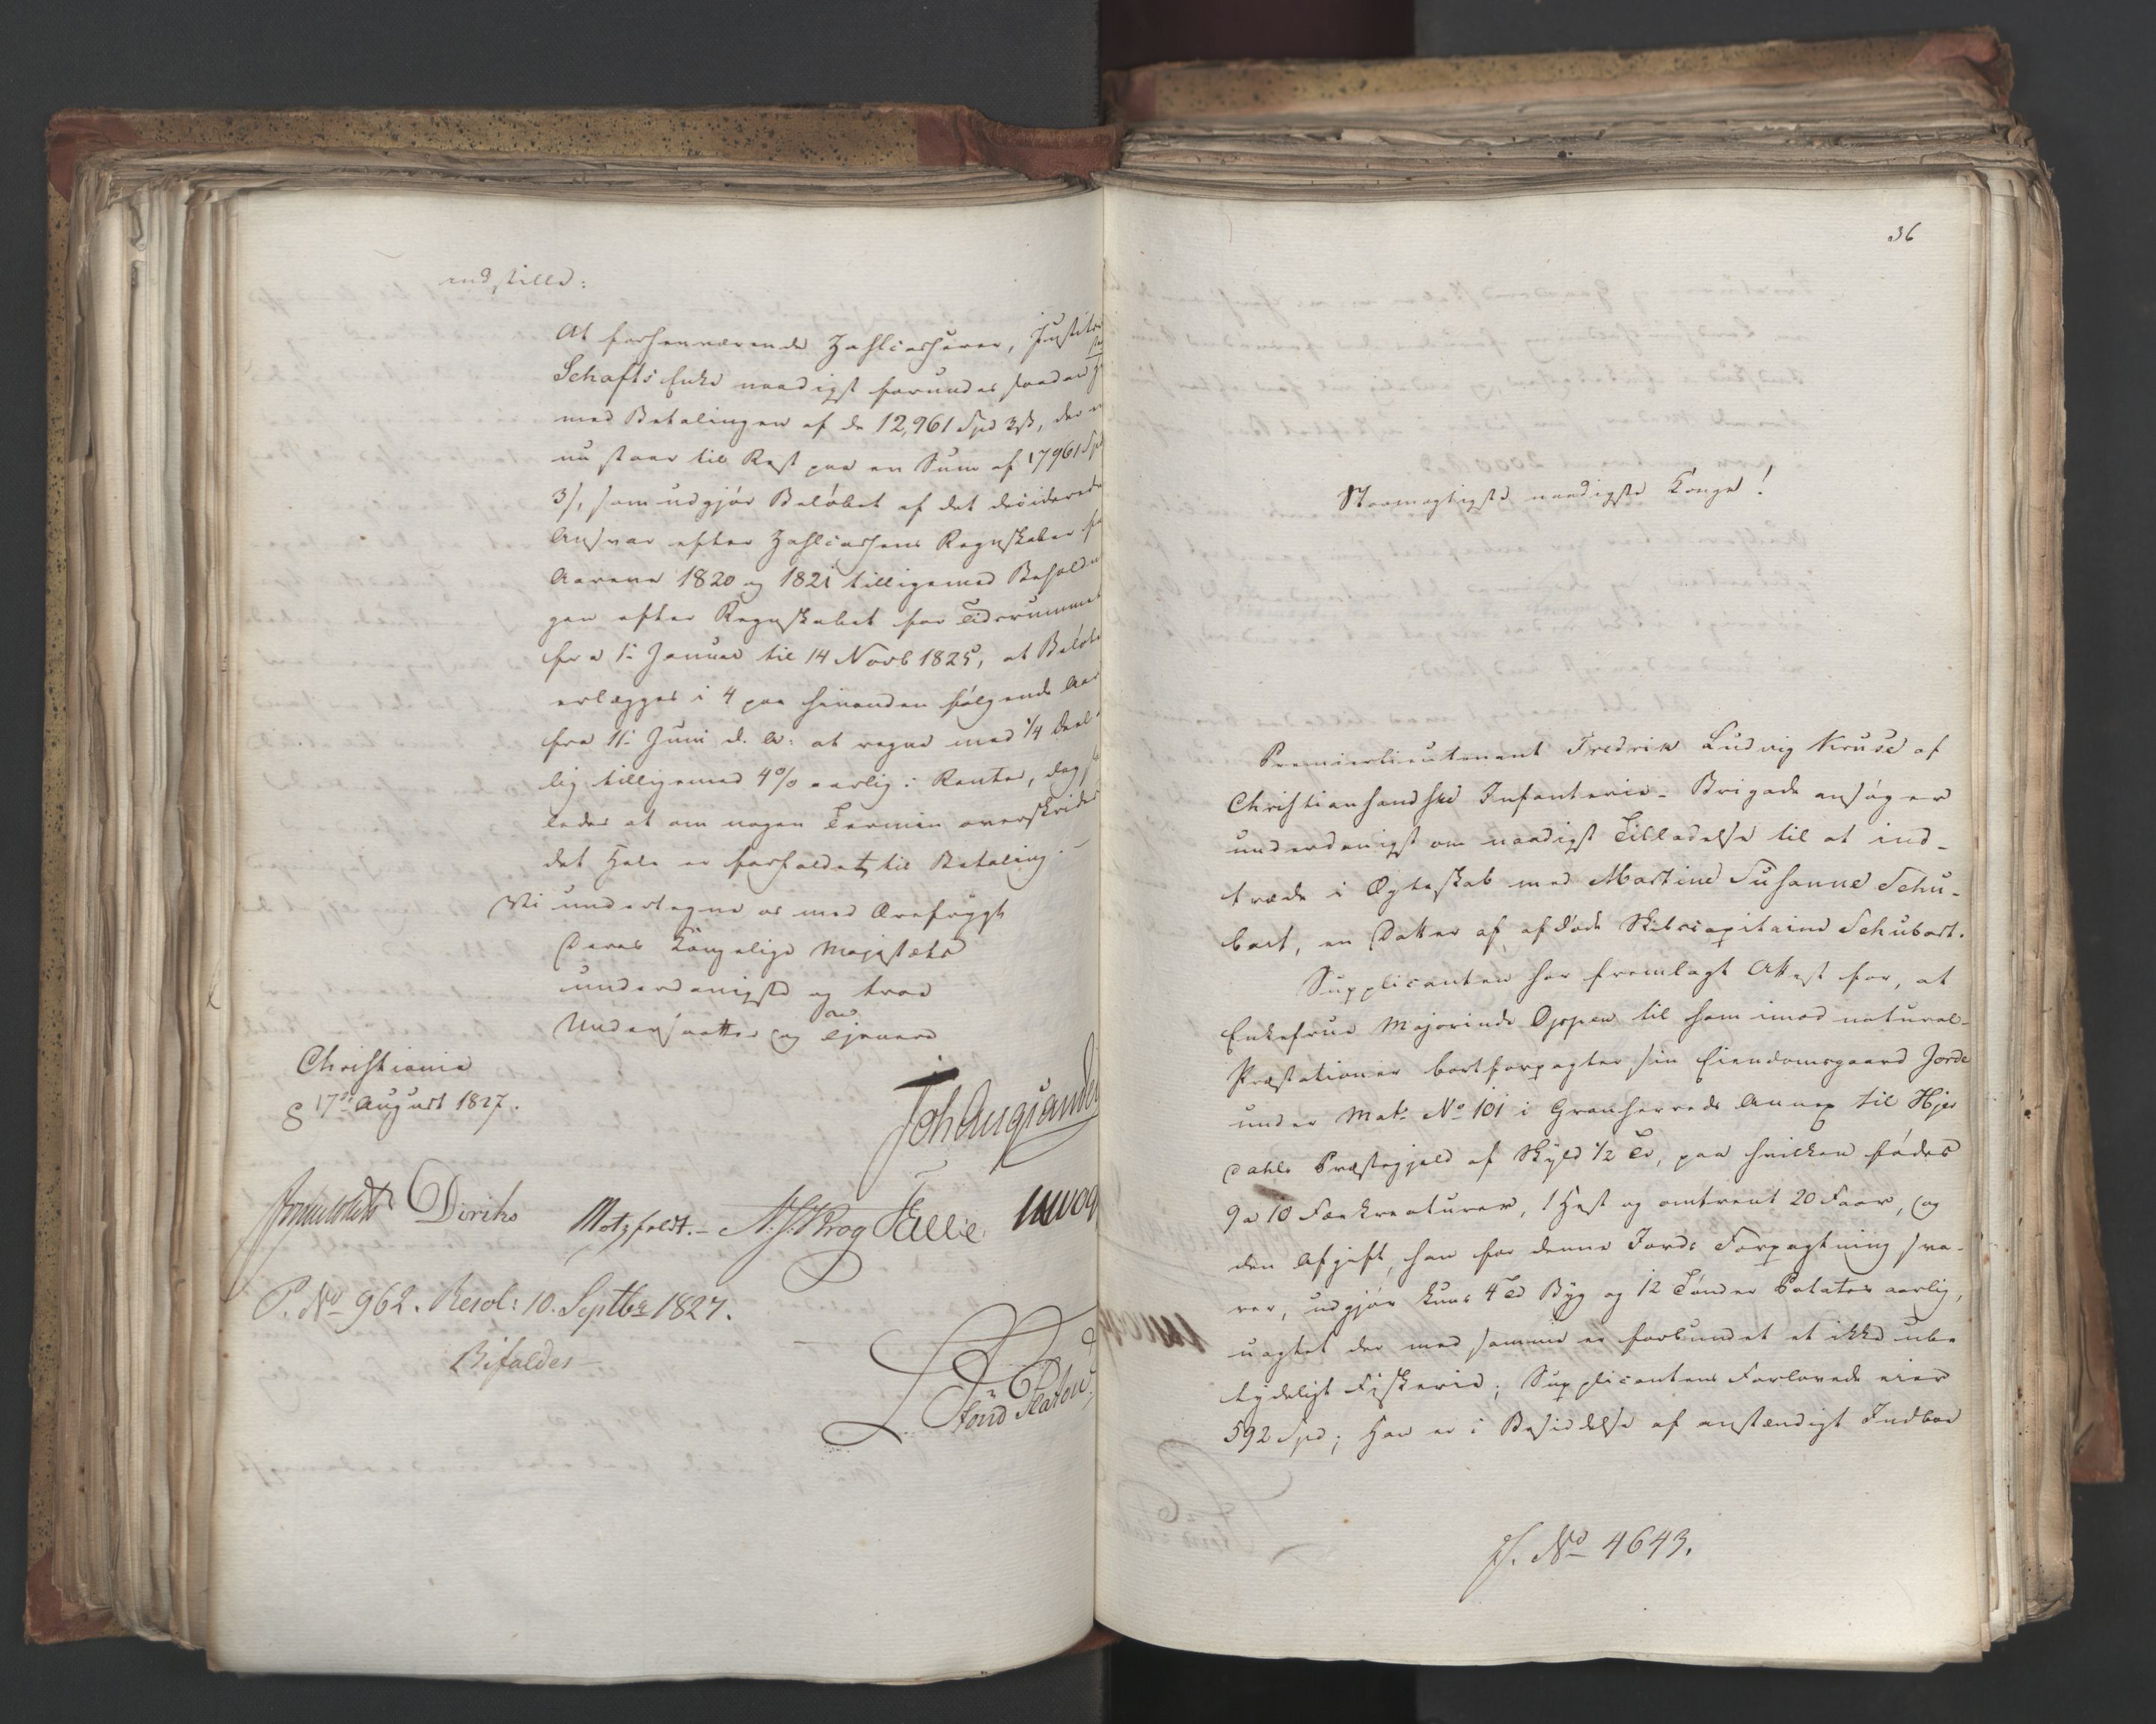 indstille:
At forhenværende Zahlcasserer, Justitsr
Schafts Enke naadigst forundes saadan
med Betalingen af de 12,961 Spd 3 s, der en
nu staar til Rest paa en Sum af 17961 Spd
3 s, som udgjør Beløbet af det deciderede
Ansvar efter Zahlcassens Regnskaber fo
Aarene 1820 og 1821 tilligemed Beholdn
gen efter Regnskabet for Tidsrummet
fra 1ste Januar til 14 Novb 1825, at Beløbe
erlægges i 4 paa hinanden følgende Aar
fra 11te Juni d. A: at regne med 1/4 Deel
lig tilligemed 4% aarlig: Renter, dog
ledes at om nogen Termin overskrides
det Hele er forfaldet til Betaling.
Vi undertegne os med Ærefrygt
Deres Kongelige Majestæts
underdanigste og troe
Undersaatter og Tjenere
Christiania
17de August 1827.
Diriks Motzfeldt. - N. J. Krog Fasting
P. No 962. Resol: 10. Septbr 1827.
Bifaldes
36
Stormægtigste naadigste Konge!
Premierlieutenant Fredrik Ludvig Kruse af
Christiansandske Infanterie-Brigade ansøger
underdanigst om naadigst Tilladelse til at ind-
træde i Ægteskab med Martine Susanne Schu-
bart, en Datter af afdøde Skibscapitaine Schubart.
Supplicanten har fremlagt Attest for, at
Enkefrue Majorinde Oppen til ham imod natural-
Præstationer bortforpagter sin Eiendomsgaard Jorde
under Mat: No 101 i Granherreds Annex til Hjer
dahls Præstegjeld af Skyld 1/2 Td, paa hvilken fødes
9 a 10 Fækreaturer, 1 Hest og omtrent 20 Faar, og
den Afgift, han for denne Jords Forpagtning sva-
rer, udgjør kuns 4 Td Byg og 12 Tønder Potatos aarlig,
uagtet der med samme er forbundet et ikke ube
tydeligt Fiskerie; Supplicantens Forlovede eier
592 Spd; Han er i Besiddelse af anstændigt Indboe
J. No 4643.